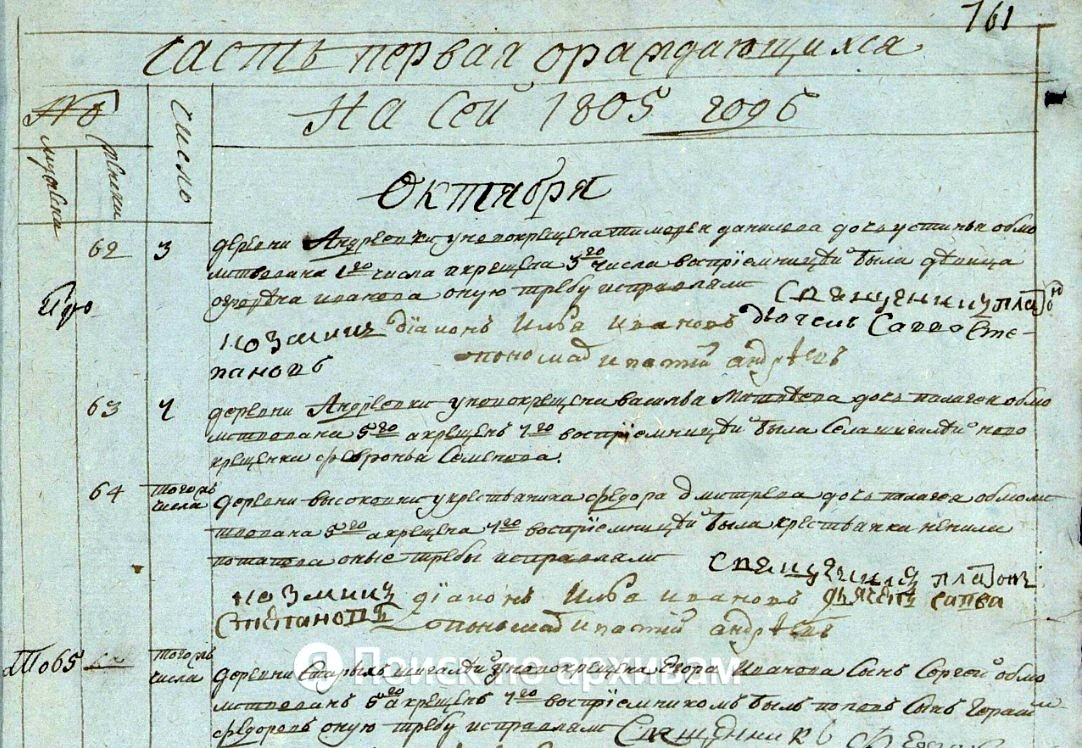 161
Часть первая о раждающихся
На сей 1805 годъ
№
мужска
женски
Число
Октября
62 3 деревни Андреевки у новокрещена Тимофея Данилова дочь Устинья обмо
литвована 1го числа и крещена 3го числа воспріемницей была девица
Иванова оную требу исправляли Священникъ Платонъ
Козминъ діаконъ Илья Ивановъ дьячекъ Савва Сте-
пановъ пономарь Ипатий Андреевъ
63 4 деревни Андреевки у новокрещена Василья Матвеева дочь Палагея обмо
литвована 3го а крещенъ 4го воспріемницей была Села ново
крещенка Февронья Семенова.
64 того же числа деревни Высоковки у крестьянина Федора Дмитрева дочь Палагея обмоли
твована 3го а крещена 4го воспріемницей была крестьянка Ненила
Потапова оные требы исправляли Священникъ Платонъ
Козминъ діаконъ Илья Ивановъ дьячекъ Савва
Степановъ пономарь Ипатий Андреевъ
65 того же числа деревни Старыхъ у новокрещена Егора Иванова сынъ Сергей обмо
литвованъ а крещенъ 4го воспріемникомъ былъ поповъ сынъ Гераси
Федоровъ оную требу исправляли Священникъ
Поиск по архивам